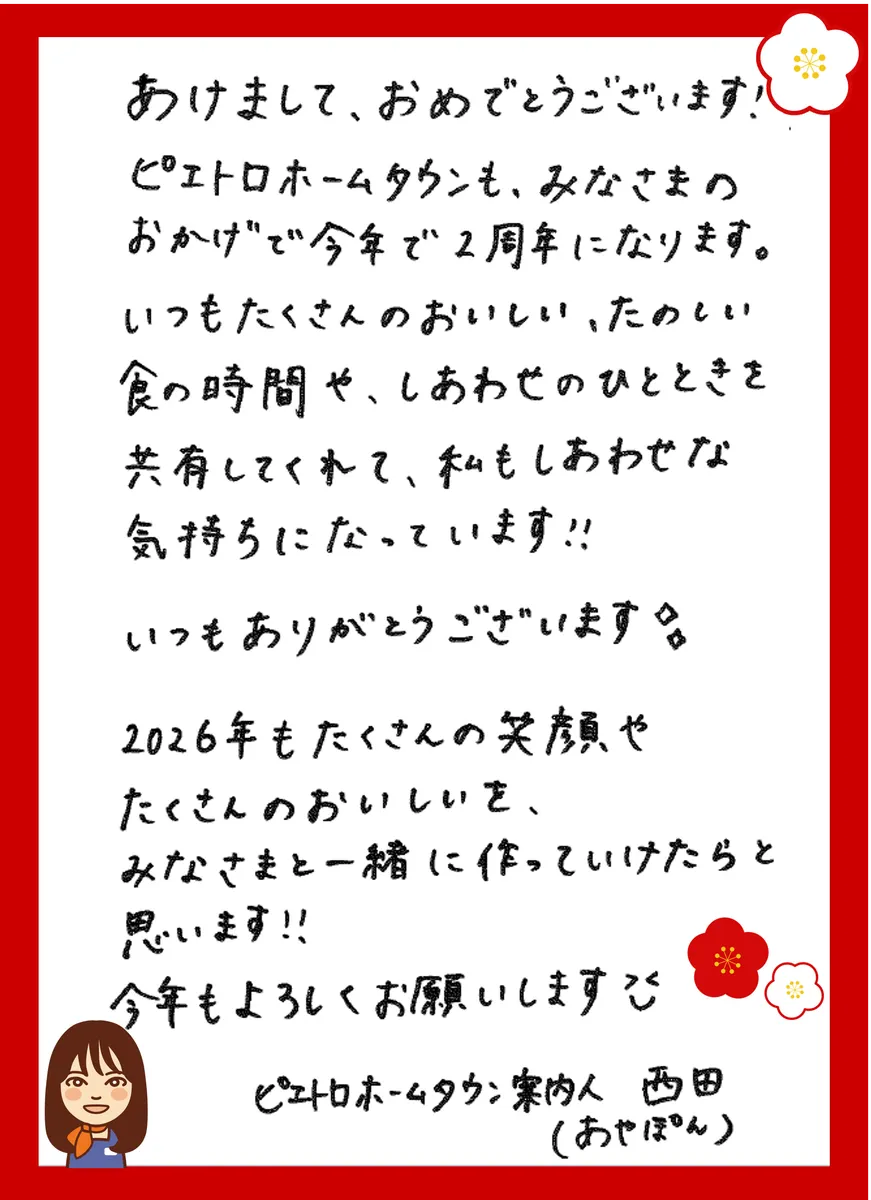 あけまして、おめでとうございます!
ピエトロホームタウンも、みなさまの
おかげで今年で2周年になります。
いつもたくさんのおいしい、たのしい
食の時間や、しあわせのひとときを
共有してくれて、私もしあわせな
気持ちになっています!!
いつもありがとうございます
2026年もたくさんの笑顔や
たくさんのおいしいを、
みなさまと一緒に作っていけたらと
思います!!
今年もよろしくお願いします
ピエトロホームタウン案内人 西田
(あやぽん)